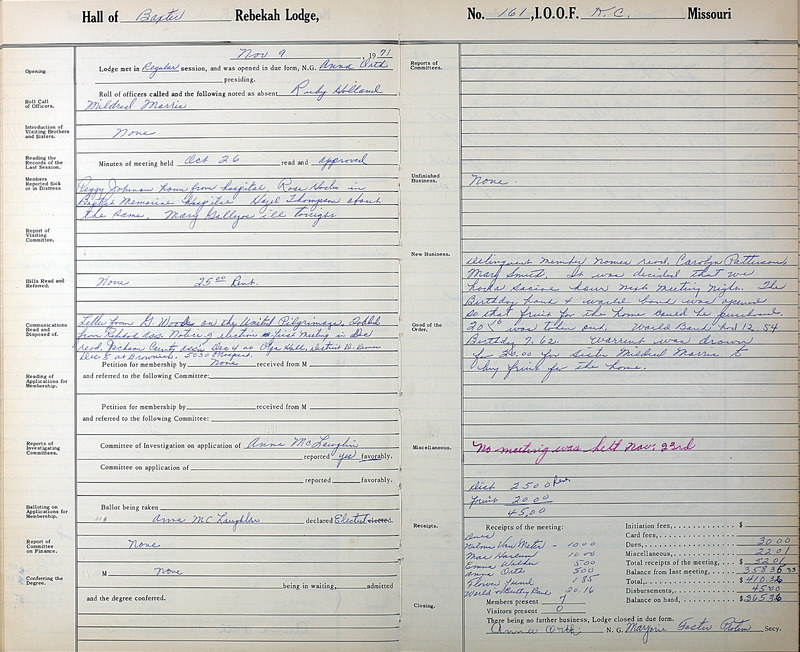 Hall of Baxter Rebekah Lodge,
Nov 9 1971
Opening.
Lodge met in Regular session, and was opened in due form, N.G. Anna Orth
presiding.
Roll Call of Officers.
Roll of officers called and the following noted as absent Ruby Holland
Mildred Marris
Introduction of Visiting Brothers and Sisters.
None
Reading the Records of the Last Session.
Minutes of meeting held Oct 26 read and approved
Members Reported Sick or in Distress
Peggy Johnson home from hospital, Rose in
Baptist Memorial Hospital Hazel Thompson about
the same. Mary Gallyos ill tonight
Report of Visiting Committee.
Bills Read and Referred.
None 25.00 Rent.
Communications Read and Disposed of.
Letter from G. Woods on the United Pilgrimage.
from Notice of election first Meeting in Dec
read. Jackson County Dec 4 at Hall. District D.
Dec 5 at Brownies. 5030 Prospect.
Reading of Applications for Membership.
Petition for membership by None received from M
and referred to the following Committee:
Petition for membership by received from M
and referred to the following Committee:
Reports of Investigating Committees.
Committee of Investigation on application of Anna McLaughlin
reported yes favorably.
Committee on application of
reported favorably.
Balloting on Applications for Membership.
Ballot being taken
Anna McLaughlin declared Elected elected.
Report of Committee on Finance.
None
Conferring the Degree.
M None
being in waiting, admitted
and the degree conferred.
No. 161, I.O.O.F. K.C. Missouri
Reports of Committees.
Unfinished Business.
None.
New Business.
Delinquent member names read. Carolyn Patterson,
Mary Smith. It was decided that we
have a social hour next meeting night. The
Birthday bank & world bank was opened
so that fruit for the home could be purchased
20.16 was taken out. World Bank had 12.54
Good of the Order.
Birthday 7.62. Warrent was drawn
for 20.00 for Sister Mildred Marris to
buy fruit for the home.
Miscellaneous.
No meeting was held Nov. 23rd
Dist 25.00 Rent
Fruit 20.00
45.00
Receipts.
Receipts of the meeting:
Dues
Wilma Van Meter - 10.00
Mae 10.00
Emma Walker 5.00
Anna Orth 5.00
Flower Fund 1.85
World & Birthday Bank 20.16
Members present 7
Visitors present 0
Initiation fees, $
Card fees,
Dues, 30.00
Miscellaneous, 22.01
Total receipts of the meeting, $ 52.01
Balance from last meeting,
Total, $ 410.36
Disbursements, 45.00
Balance on hand, $ 365.36
Closing.
There being no further business, Lodge closed in due form.
Anna Orth N. G. Marjorie Foster Protem Secy.